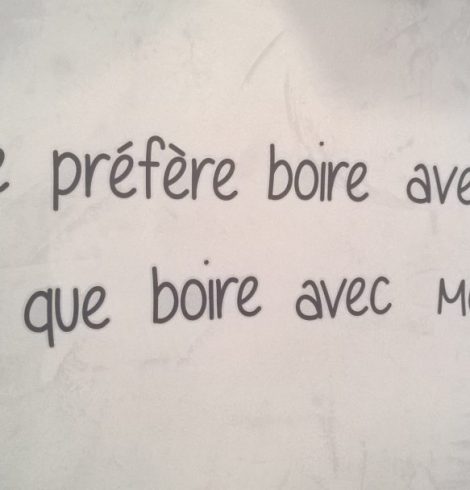 préfère boire
que boire avec